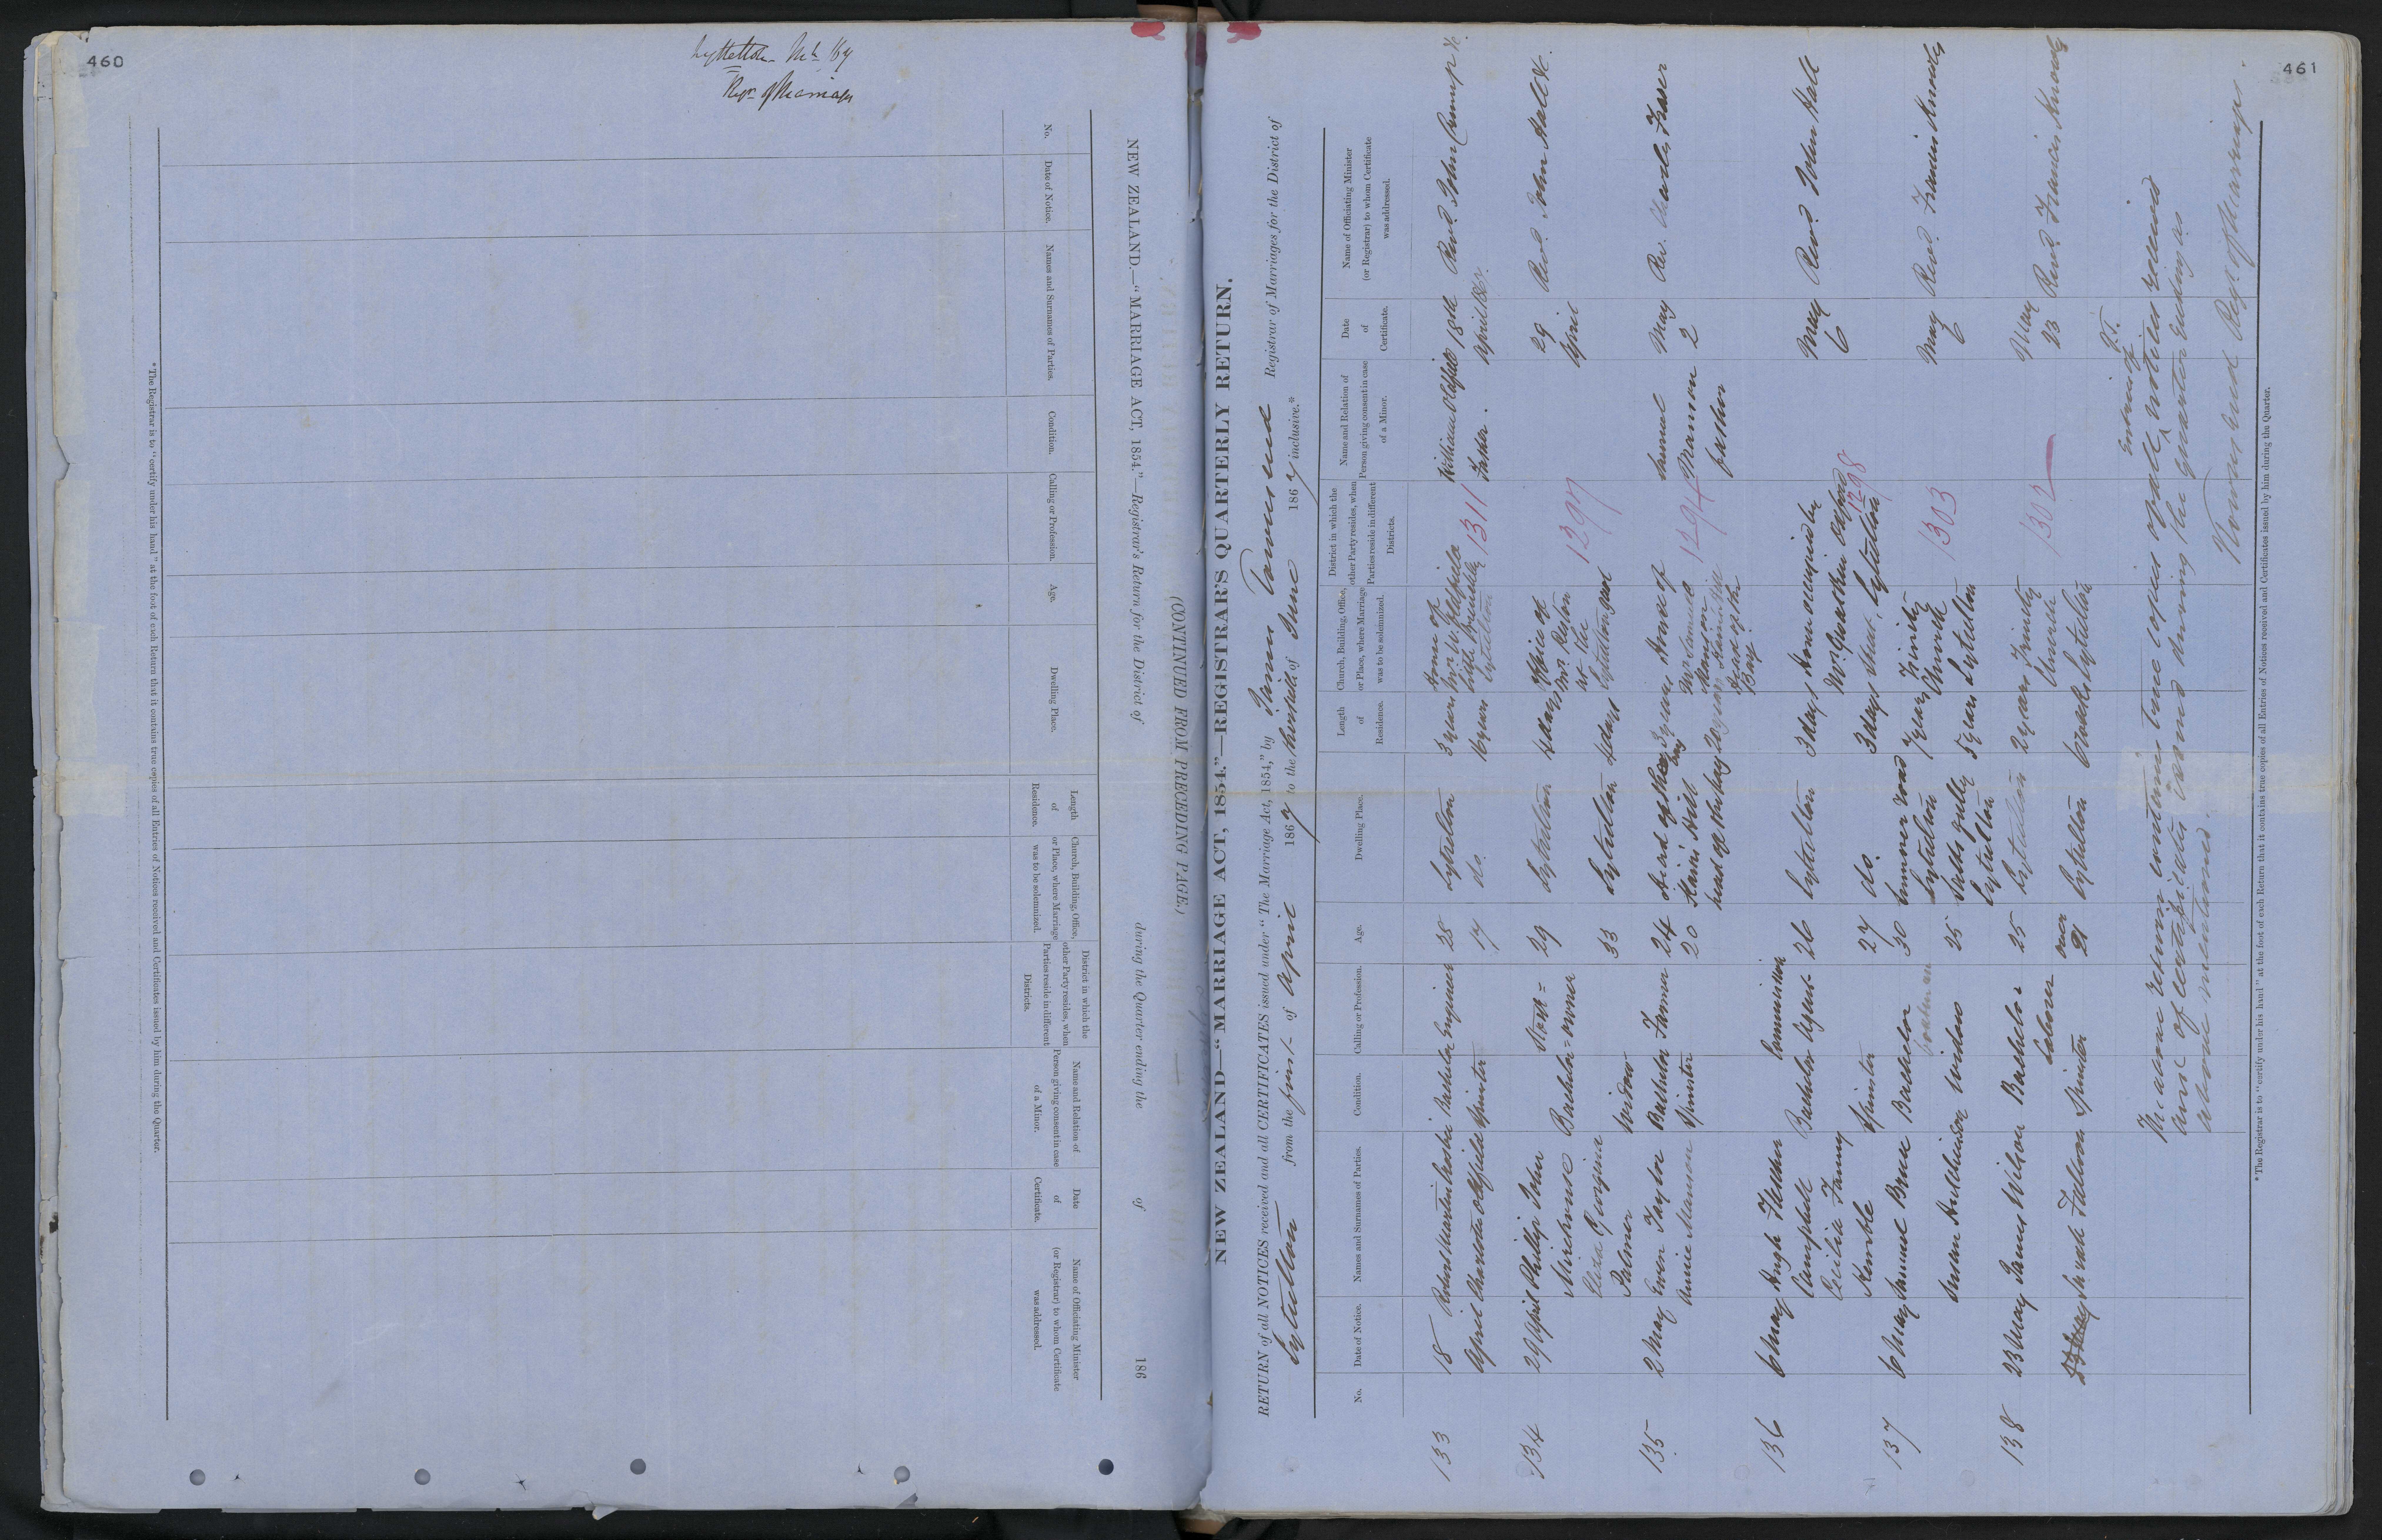 460
Lyttelton
NEW ZEALAND.—"MARRIAGE ACT, 1854."—Registrar's Return for the District of during the Quarter ending the of 186
(CONTINUED FROM PRECEDING PAGE.)
No.
Date of Notice.
Names and Surnames of Parties.
Condition.
Calling or Profession.
Age.
Dwelling Place.
Length of Residence.
Church, Building, Office, or Place, where Marriage was to be solemnized.
District in which the other Party resides, when Parties reside in different Districts.
Name and Relation of Person giving consent in case of a Minor.
Date of Certificate.
Name of Officiating Minister (or Registrar) to whom Certificate was addressed.
*The Registrar is to "certify under his hand" at the foot of each Return that it contains true copies of all Entries of Notices received and Certificates issued by him during the Quarter.
461
NEW ZEALAND—"MARRIAGE ACT, 1854."—REGISTRAR'S QUARTERLY RETURN.
RETURN of all NOTICES received and all CERTIFICATES issued under "The Marriage Act, 1854," by James Townsend Registrar of Marriages for the District of
Lyttelton from the first of April 1867 to the thirtieth of June 1867 inclusive.*
No.
Date of Notice.
Names and Surnames of Parties.
Condition.
Calling or Profession.
Age.
Dwelling Place.
Length of Residence.
Church, Building, Office, or Place, where Marriage was to be solemnized.
District in which the other Party resides, when Parties reside in different Districts.
Name and Relation of Person giving consent in case of a Minor.
Date of Certificate.
Name of Officiating Minister (or Registrar) to whom Certificate was addressed.
133 18 Robert Martin Bachelor Engineer 28 Lyttelton 3 years House of William Oldfield 18th Revd. John
April Charlotte Oldfield Spinster 17 do. 6 years Mr. W. Oldfield Lyttelton 1311 Father. April 1867.
134 29 April Phillip John Bachelor 29 Lyttelton 4 days Office of 1297 29 April Revd. John Hall
Eliza Georgina Palmer Widow 33 Lyttelton 4 days Lyttelton
135 2 May Ewen Taylor Bachelor Farmer 24 3 years House of 1294 Samuel Manson father May 2 Rev. Charles Fraser
Annie Manson Spinster 20 head of the bay 20 years Mr. Samuel Manson Head of the Bay
136 6 May Hugh Fletcher Campbell Bachelor Commission Agent 26 Lyttelton 3 days House occupied by 1298 May 6 Revd. John Hall
Cecilia Fanny Kemble Spinster 27 do. 3 days Street, Lyttelton
137 6 May Samuel Bruce Bachelor boatman 30 Sumner road Lyttelton 7 years Trinity Church Lyttelton 1303 May 6 Revd. Francis Knowles
Susan Hutchinson widow 35 Salts gully Lyttelton 5 years
138 23 May James Wilson Bachelor Laborer 25 Lyttelton 2 years Trinity Church Lyttelton 1302 May 23 Revd. Francis Knowles
Sarah Falloon Spinster over 21 Lyttelton 6 weeks
The above return contains true copies of all entries of notices received
and of certificates issued during the quarter ending as
above mentioned.
Townsend Regr. of Marriages.
*The Registrar is to "certify under his hand" at the foot of each Return that it contains true copies of all Entries of Notices received and Certificates issued by him during the Quarter.